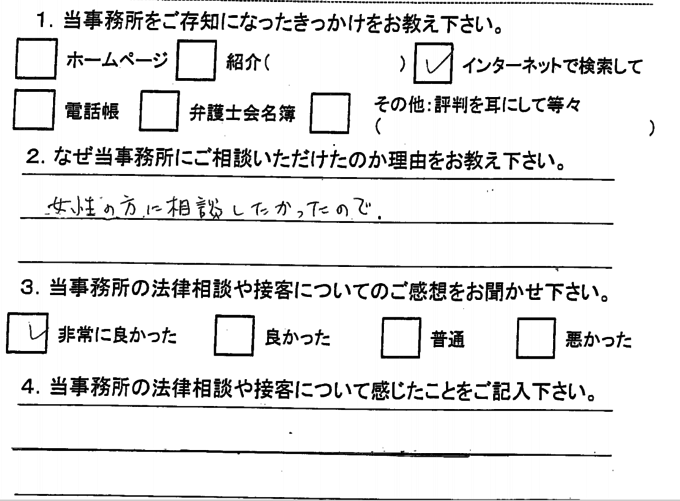 1. 当事務所をご存知になったきっかけをお教え下さい。
ホームページ 紹介( ) インターネットで検索して
電話帳 弁護士会名簿 その他:評判を耳にして等々
( )
2. なぜ当事務所にご相談いただけたのか理由をお教え下さい。
女性の方に相談したかったので.
3. 当事務所の法律相談や接客についてのご感想をお聞かせ下さい。
非常に良かった 良かった 普通 悪かった
4. 当事務所の法律相談や接客について感じたことをご記入下さい。